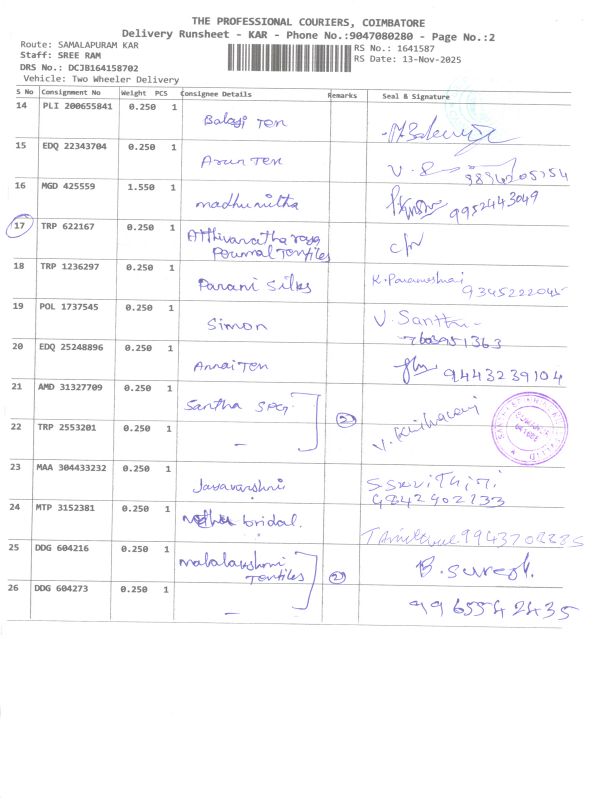 THE PROFESSIONAL COURIERS, COIMBATORE
Delivery Runsheet - KAR - Phone No.:9047080280 - Page No.:2
Route: SAMALAPURAM KAR
Staff: SREE RAM
DRS No.: DCJB164158702
Vehicle: Two Wheeler Delivery
RS No.: 1641587
RS Date: 13-Nov-2025
S No Consignment No Weight PCS Consignee Details Remarks Seal & Signature
14 PLI 200655841 0.250 1 Balaji Ten
15 EDQ 22343704 0.250 1 Arun Ten
16 MGD 425559 1.550 1 madhumitha 9952443049
17 TRP 622167 0.250 1 Atthivaratha raja
Perumal Textiles
18 TRP 1236297 0.250 1 Parani Silks K. Parameshwari
9345222045
19 POL 1737545 0.250 1 Simon V. Santhi
7603951363
20 EDQ 25248896 0.250 1 Annai Ten 9443239104
21 AMD 31327709 0.250 1 Santha SPG. (2)
22 TRP 2553201 0.250 1 –
23 MAA 304433232 0.250 1 Jayavarshni
9842902133
24 MTP 3152381 0.250 1 bridal.
25 DDG 604216 0.250 1 mahalakshmi
Textiles (2) B. Suresh.
26 DDG 604273 0.250 1 – 9965542435